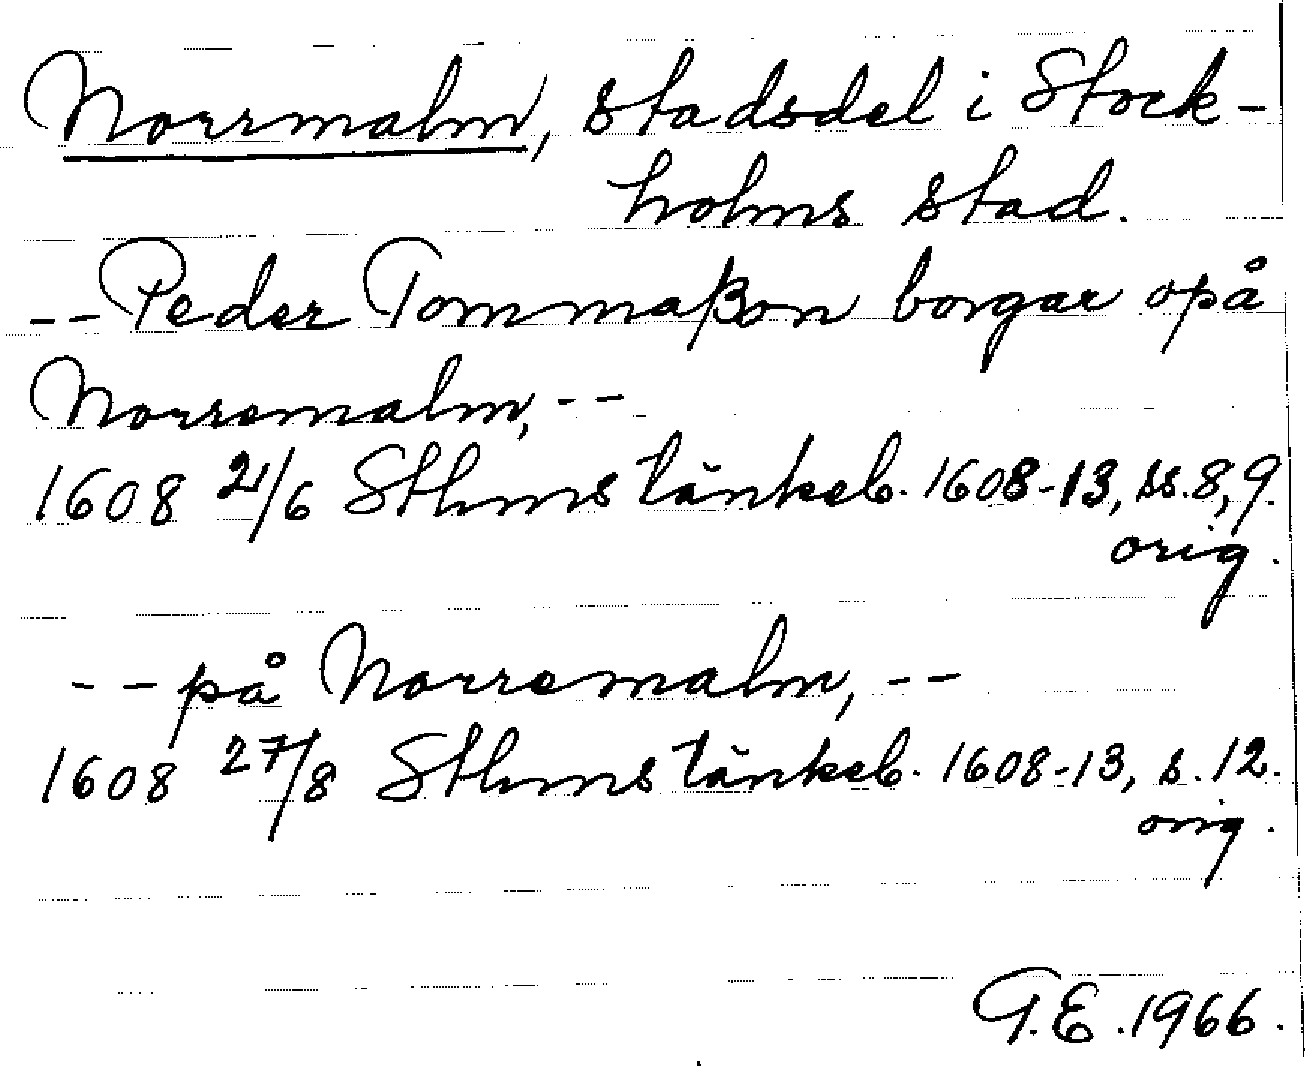 Norrmalm, stadsdel i Stock-
holms stad.
-- Peder Tommaßon borgar opå
Norremalm, --
1608 21/6 Sthms tänkeb. 1608-13, ss. 8, 9.
orig.
-- på Norremalm, --
1608 27/8 Sthms tänkeb. 1608-13, s. 12.
orig.
G.E. 1966.